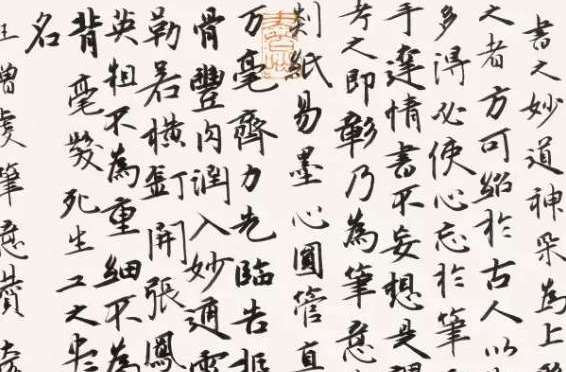 書之妙道神采為上
之者方可紹於古人以
多得必使心忘於筆
手達情書不妄想是謂
考之即彰乃為筆意
剡紙易墨心圓管直
万毫齊力先臨告誓
骨豐肉潤入妙通靈
勒若橫釘開張鳳
英粗不為重細不為
背毫髮死生工之盡
名
王僧虔筆意贊